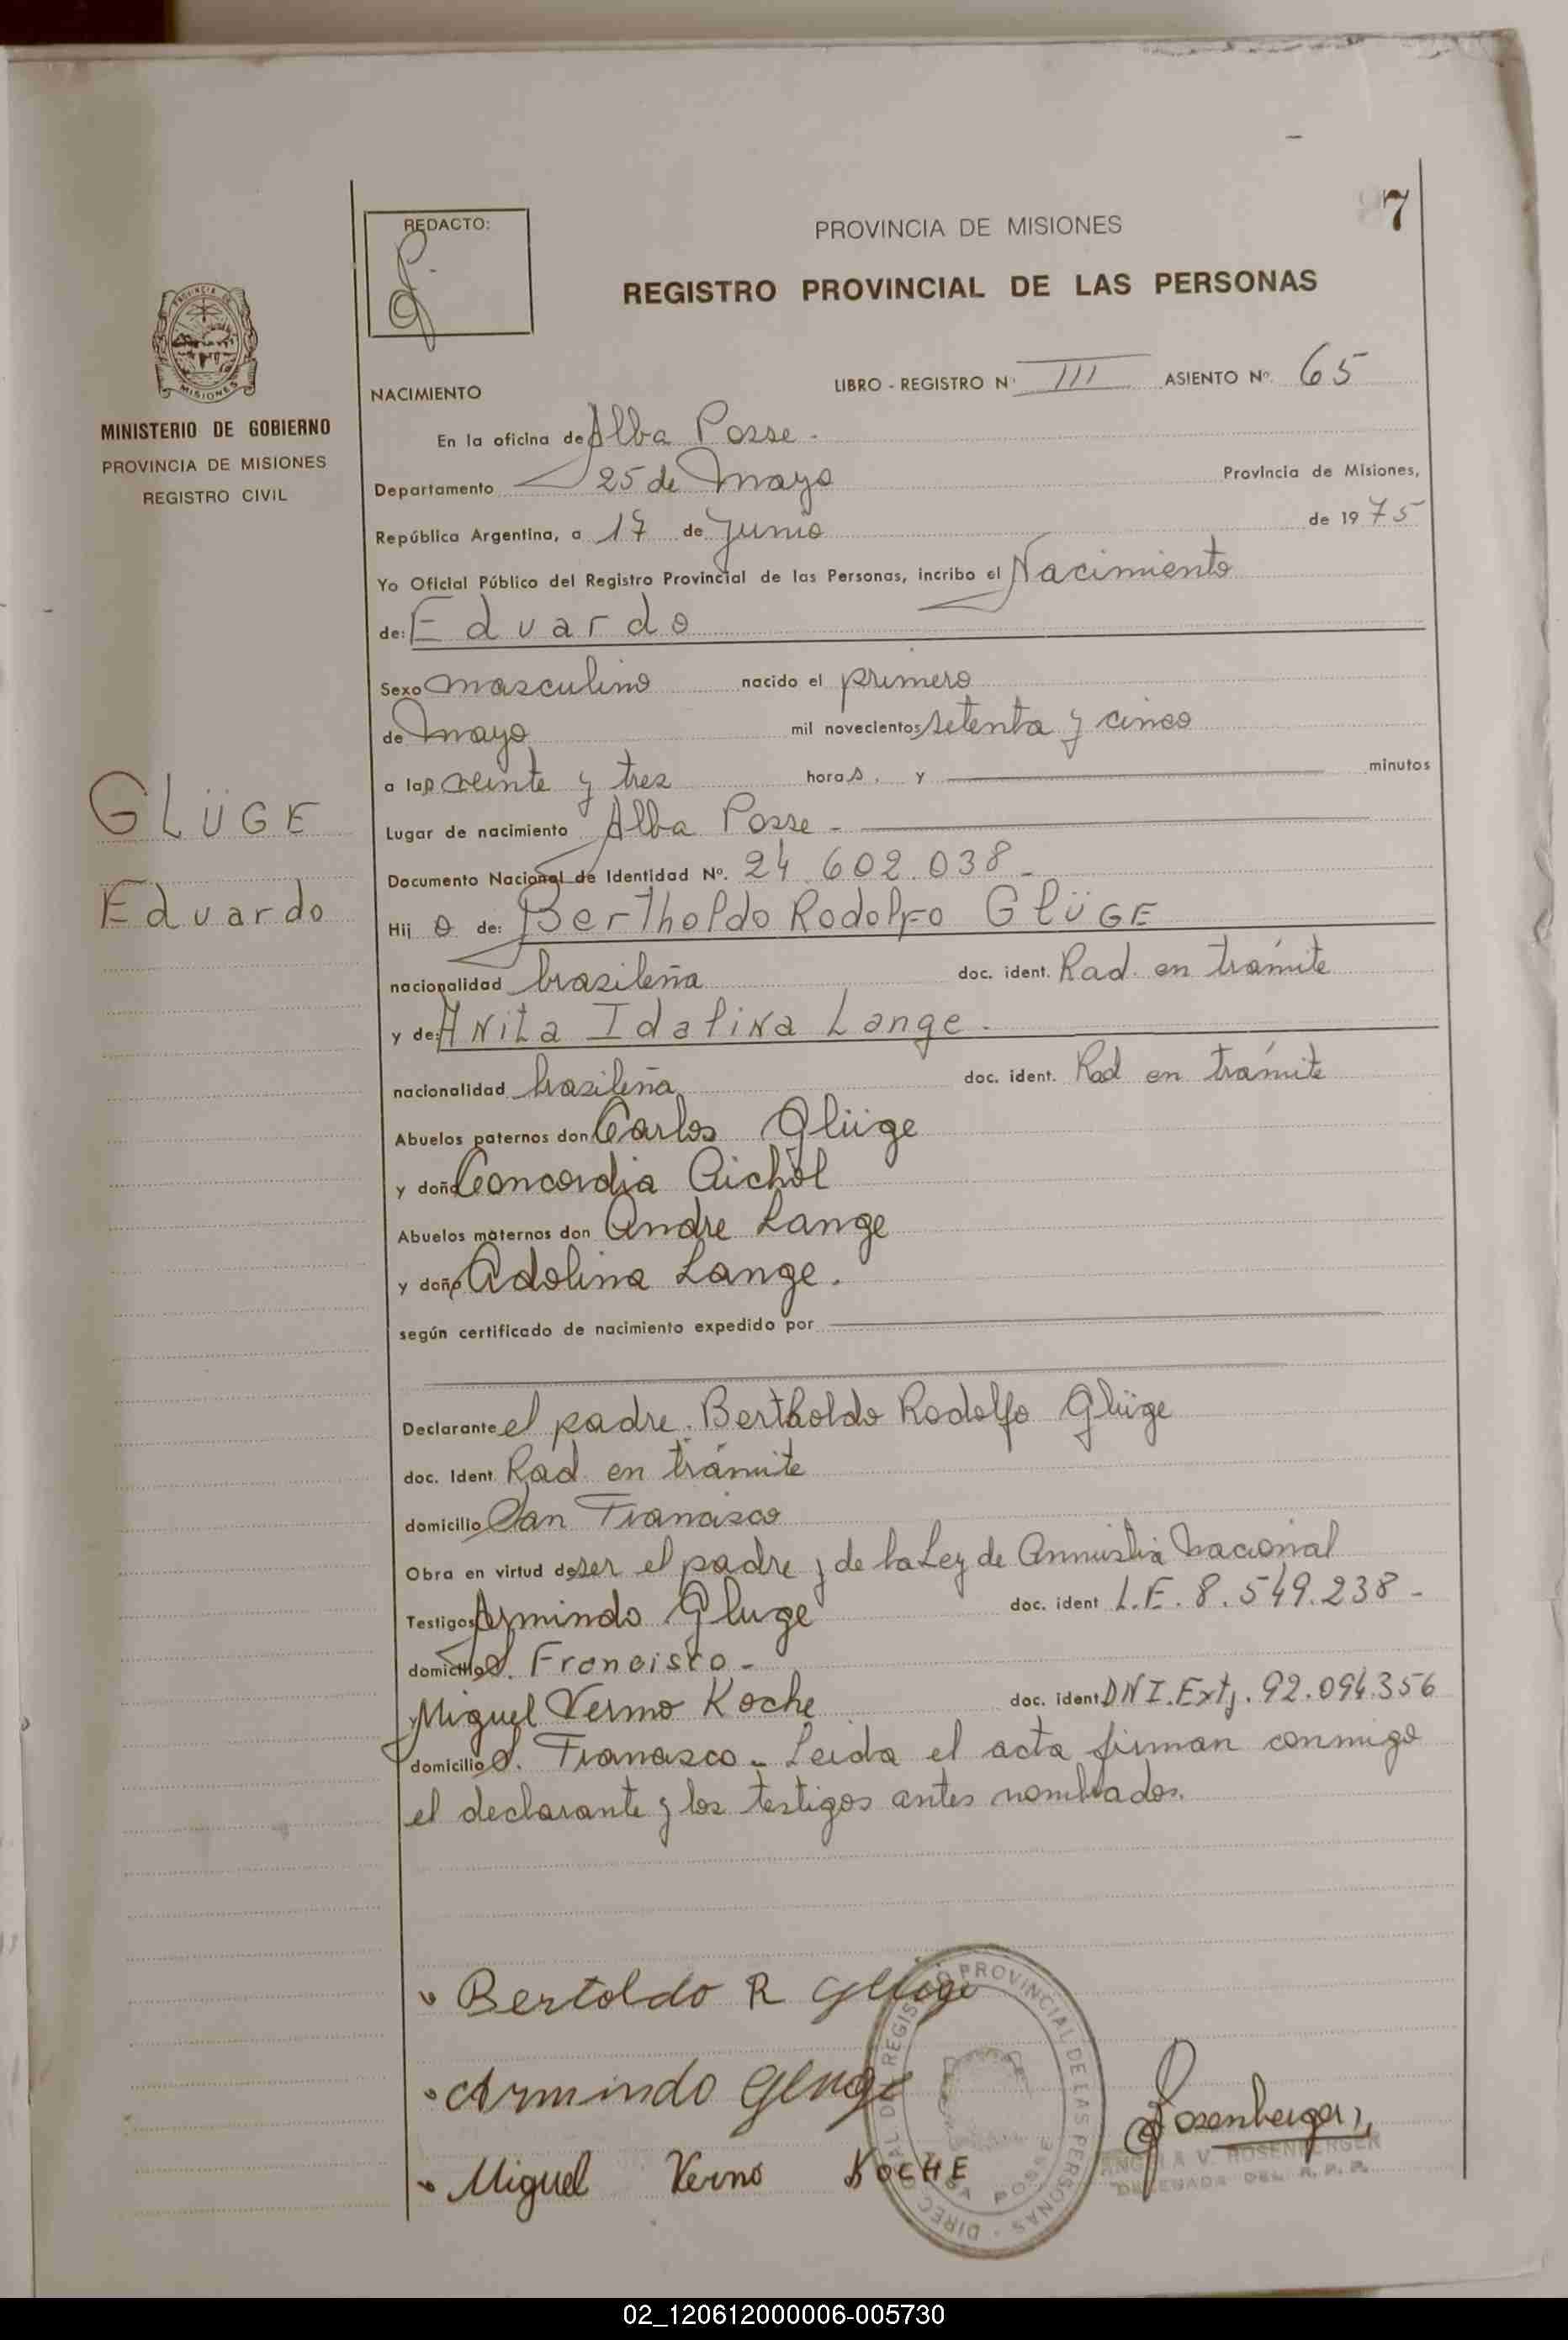 7
REDACTO:
PROVINCIA DE MISIONES
REGISTRO PROVINCIAL DE LAS PERSONAS
PROVINCIA DE
MISIONES
MINISTERIO DE GOBIERNO
PROVINCIA DE MISIONES
REGISTRO CIVIL
NACIMIENTO
LIBRO - REGISTRO N° III ASIENTO Nº. 65
En la oficina de Alba Posse.
Departamento 25 de Mayo Provincia de Misiones,
República Argentina, a 17 de Junio de 1975
Yo Oficial Público del Registro Provincial de las Personas, incribo el Nacimiento
de: Eduardo
Sexo masculino nacido el primero
de Mayo mil novecientos setenta y cinco
a las veinte y tres horas, y minutos
GLÜGE
Eduardo
Lugar de nacimiento Alba Posse -
Documento Nacional de Identidad Nº. 24.602.038 -
Hijo de: Bertholdo Rodolfo GlüGE
nacionalidad brasileña doc. ident. Rad. en trámite
y de: ANita Idalina Lange.
nacionalidad brasileña doc. ident. Rad en trámite
Abuelos paternos don Carlos Glüge
y doña Concordia Aichol
Abuelos maternos don Andre Lange
y doña Adolina Lange.
según certificado de nacimiento expedido por
Declarante el padre. Bertholdo Rodolfo Glüge
doc. Ident. Rad. en trámite
domicilio San Francisco
Obra en virtud de ser el padre y de la Ley de Amnistia Nacional
Testigos Armindo Gluge doc. ident L.E. 8.549.238 -
domicilio S. Francisco -
Miguel Vermo Koche doc. ident DNI.Extj. 92.094.356
domicilio S. Francisco - Leida el acta firman conmigo
el declarante y los testigos antes nombrados.
Bertoldo R Glüge
Armindo Gluge
Miguel Verno KOCHE
Rosenberger
REGISTRO PROVINCIAL DE LAS PERSONAS
ALBA POSSE
ANGELA V. ROSENBERGER
DELEGADA DEL R. P. P.
02_120612000006-005730